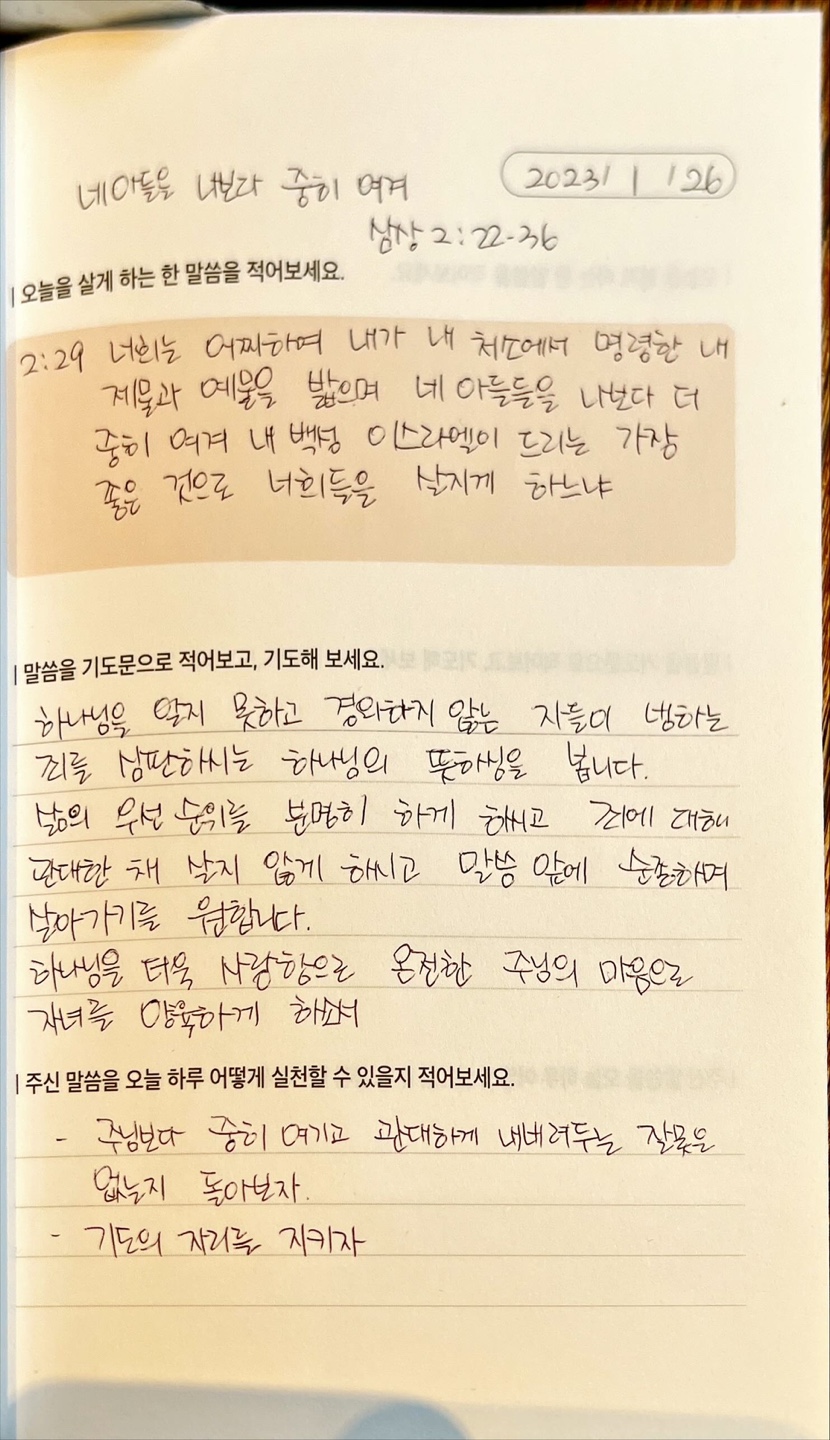 네 아들을 나보다 중히 여겨
2023/ 1 / 26
삼상 2:22-36
| 오늘을 살게 하는 한 말씀을 적어보세요.
2:29 너희는 어찌하여 내가 내 처소에서 명령한 내
제물과 예물을 밟으며 네 아들들을 나보다 더
중히 여겨 내 백성 이스라엘이 드리는 가장
좋은 것으로 너희들을 살지게 하느냐
| 말씀을 기도문으로 적어보고, 기도해 보세요.
하나님을 알지 못하고 경외하지 않는 자들이 범하는
죄를 심판하시는 하나님의 뜻하심을 봅니다.
삶의 우선 순위를 분명히 하게 하시고 죄에 대해
관대한 채 살지 않게 하시고 말씀 앞에 순종하며
살아가기를 원합니다.
하나님을 더욱 사랑함으로 온전한 주님의 마음으로
자녀를 양육하게 하소서
| 주신 말씀을 오늘 하루 어떻게 실천할 수 있을지 적어보세요.
- 주님보다 중히 여기고 관대하게 내버려두는 잘못은
없는지 돌아보자.
- 기도의 자리를 지키자